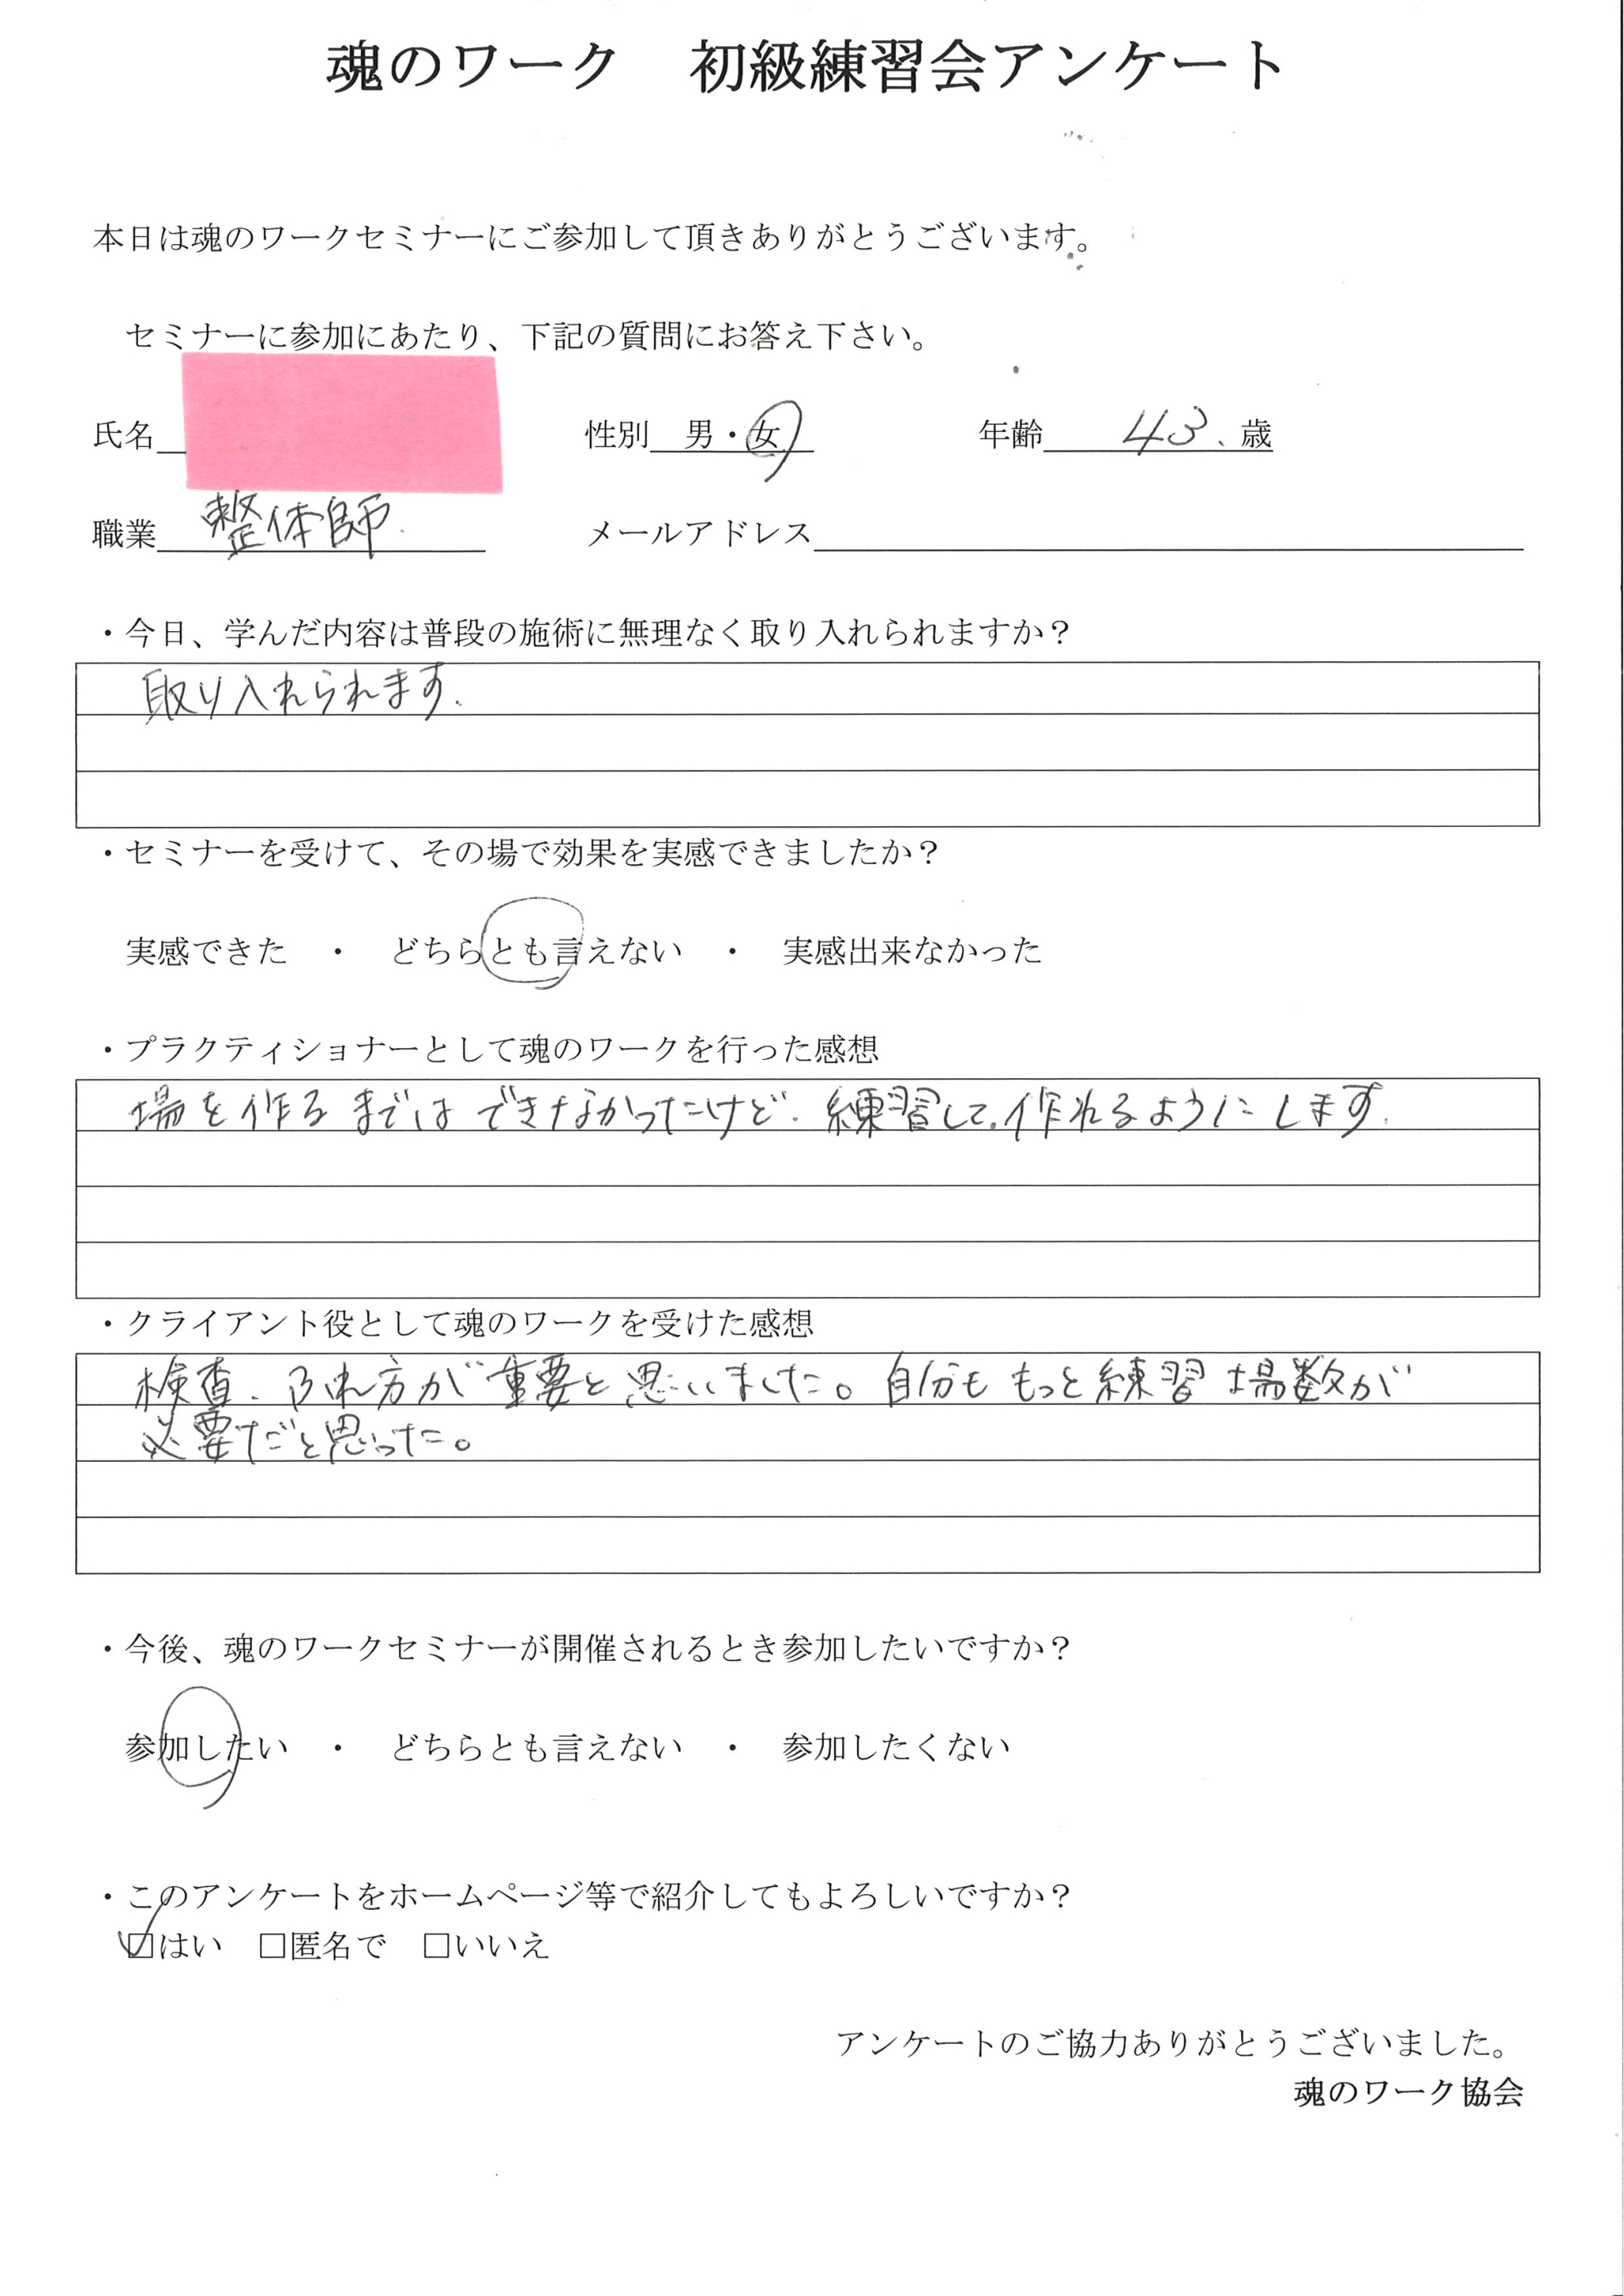 魂のワーク　初級練習会アンケート
本日は魂のワークセミナーにご参加して頂きありがとうございます。
セミナーに参加にあたり、下記の質問にお答え下さい。
氏名　性別　男・女　年齢　43.歳
職業　整体師.　メールアドレス
・今日、学んだ内容は普段の施術に無理なく取り入れられますか？
取り入れられます.
・セミナーを受けて、その場で効果を実感できましたか？
実感できた　・　どちらとも言えない　・　実感出来なかった
・プラクティショナーとして魂のワークを行った感想
場を作るまではできなかったけど.練習して.作れるようにします.
・クライアント役として魂のワークを受けた感想
検査.ふれ方が重要と思いました。自分ももっと練習場数が
必要だと思った。
・今後、魂のワークセミナーが開催されるとき参加したいですか？
参加したい　・　どちらとも言えない　・　参加したくない
・このアンケートをホームページ等で紹介してもよろしいですか？
☑はい　□匿名で　□いいえ
アンケートのご協力ありがとうございました。
魂のワーク協会